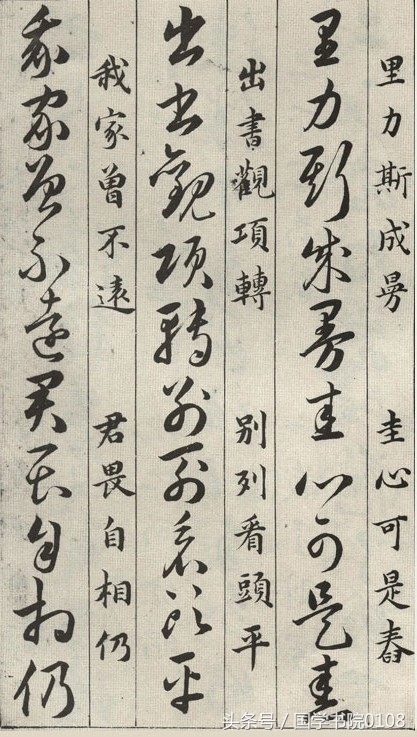 里力斯成曼 圭心可是舂
里力斯成曼圭心可是舂
出書觀項轉 別列看頭平
出書觀項轉別列看頭平
我家曾不遠 君畏自相仍
我家曾不遠君畏自相仍
头条号 / 国学书院0108